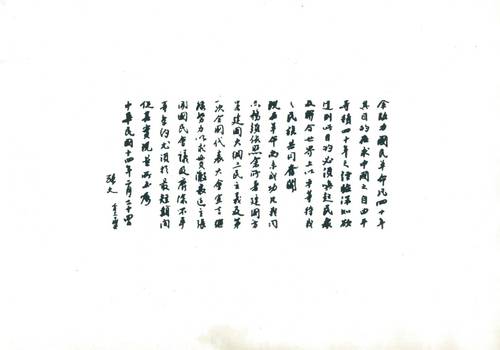 余致力國民革命凡四十年
其目的在求中國之自由平
等積四十年之經驗深知欲
達到此目的必須喚起民眾
及聯合世界上以平等待我
之民族共同奮鬥
現在革命尚未成功凡我同
志務須依照余所著建國方
略建國大綱三民主義及第
一次全國代表大會宣言繼
續努力以求貫徹最近主張
開國民會議及廢除不平
等條約尤須於最短期間
促其實現是所至囑
中華民國十四年二月二十四日
孫文